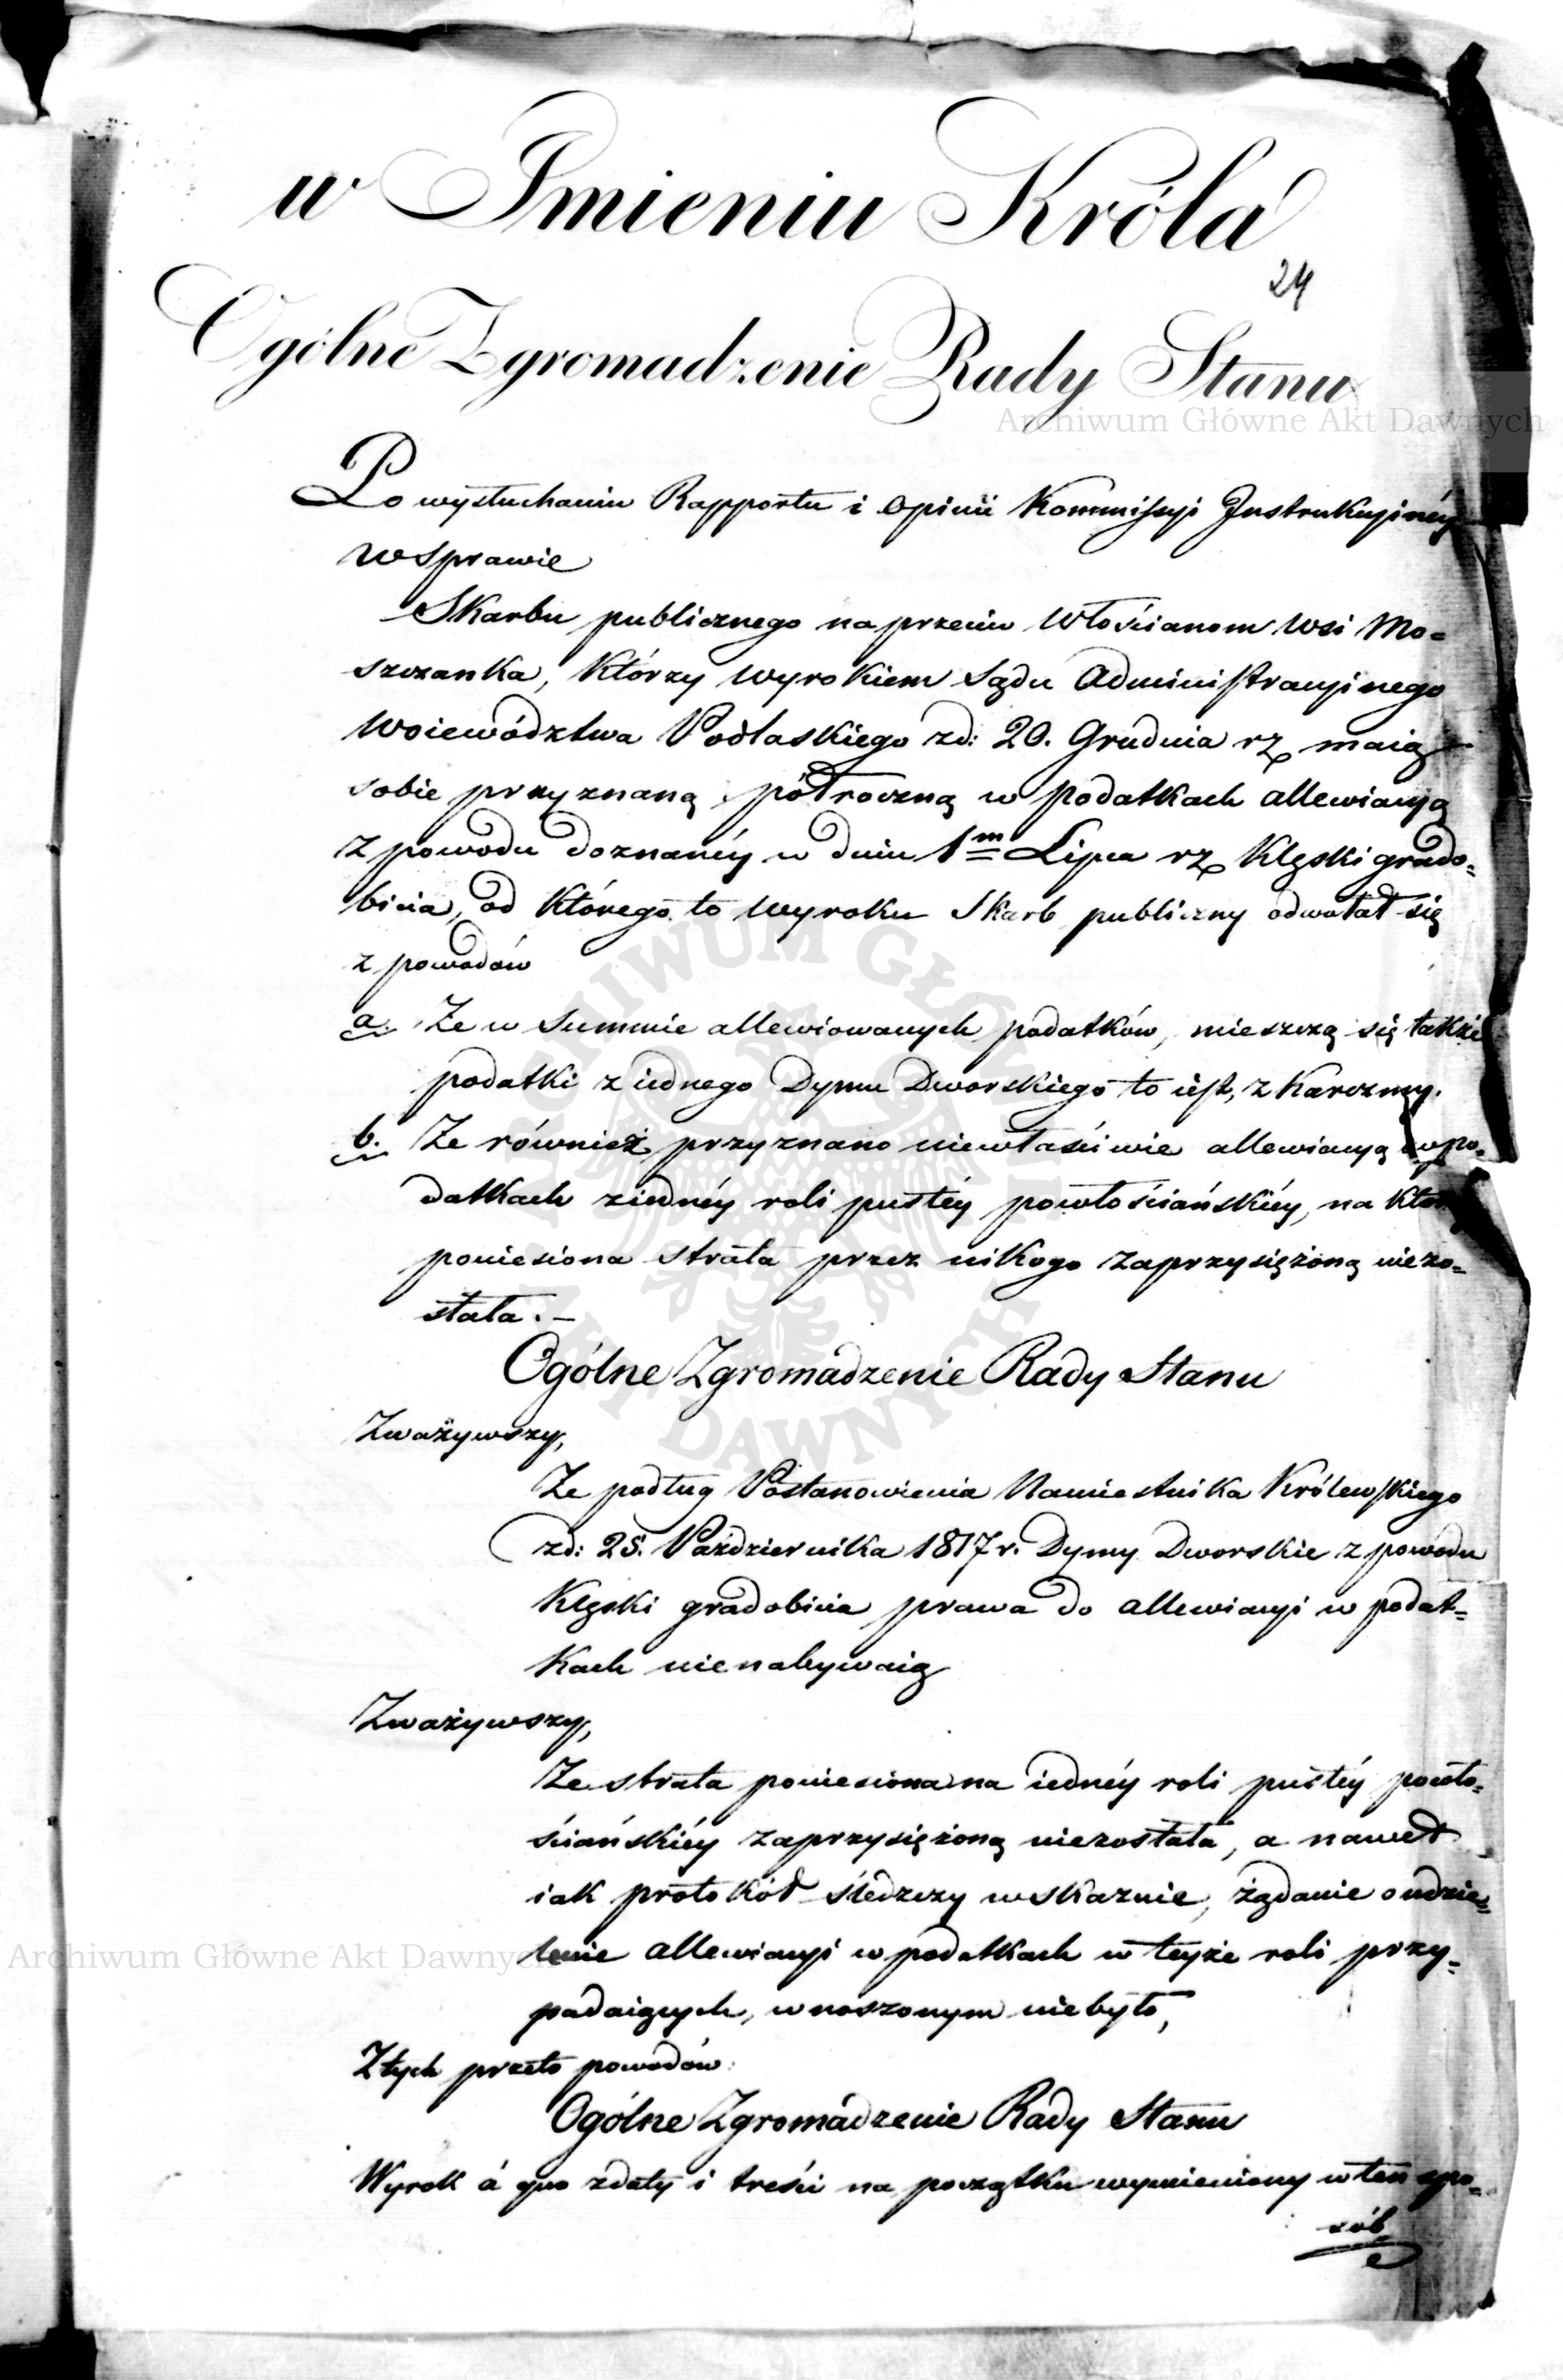 w Imieniu Króla
24
Ogólne Zgromadzenie Rady Stanu
Archiwum Główne Akt Dawnych
Po wysłuchaniu Rapportu i opinii Kommissyi Instrukcyinéy
w sprawie
Skarbu publicznego na przeciw Włościanom Wsi Mo=
szczanka, którzy wyrokiem Sądu Administracyinego
Woiewództwa Podlaskiego zd: 20. Grudnia rz maią
sobie przyznaną półroczną w podatkach allewiacyą
z powodu doznanéy w dniu 1m Lipca rz klęski grado=
bicia, od którego to wyroku Skarb publiczny odwołał się
z powodów
a. Że w Summie allewiowanych podatków, mieszczą się także
podatki z iednego Dymu Dworskiego to iest, z Karczmy.
b. Że również przyznano niewłaściwie allewiacyą w po=
datkach ziednéy roli pustéy powłościańskiéy, na
poniesiona strata przez nikogo zaprzysiężoną niezo=
stała. -
Ogólne Zgromadzenie Rady Stanu
Zważywszy,
Że podług Postanowienia Namiestnika Królewskiego
zd: 25. Października 1817 r. Dymy Dworskie z powodu
klęski gradobicia prawa do allewiacyi w podat=
kach nienabywaią
Zważywszy,
Że strata poniesiona na iednéy roli pustéy powło=
ściańskiéy zaprzysiężoną niezostała, a nawet
iak protokół śledczy wskazuie, żądanie o udzie=
lenie allewiacyi w podatkach w teyże roli przy=
padaiących, wnoszonym niebyło,
Archiwum Główne Akt Dawnych
Z tych przeto powodów
Ogólne Zgromadzenie Rady Stanu
Wyrok á quo zdaty i treści na początku wymieniony w ten spo=
sób
ARCHIWUM GŁÓWNE AKT DAWNYCH